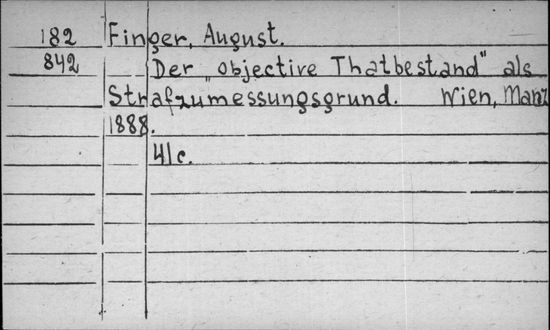 182 Finger, August.
842 Der „objective Thatbestand" als
Strafzumessungsgrund. Wien, Manz
1888.
41 c.